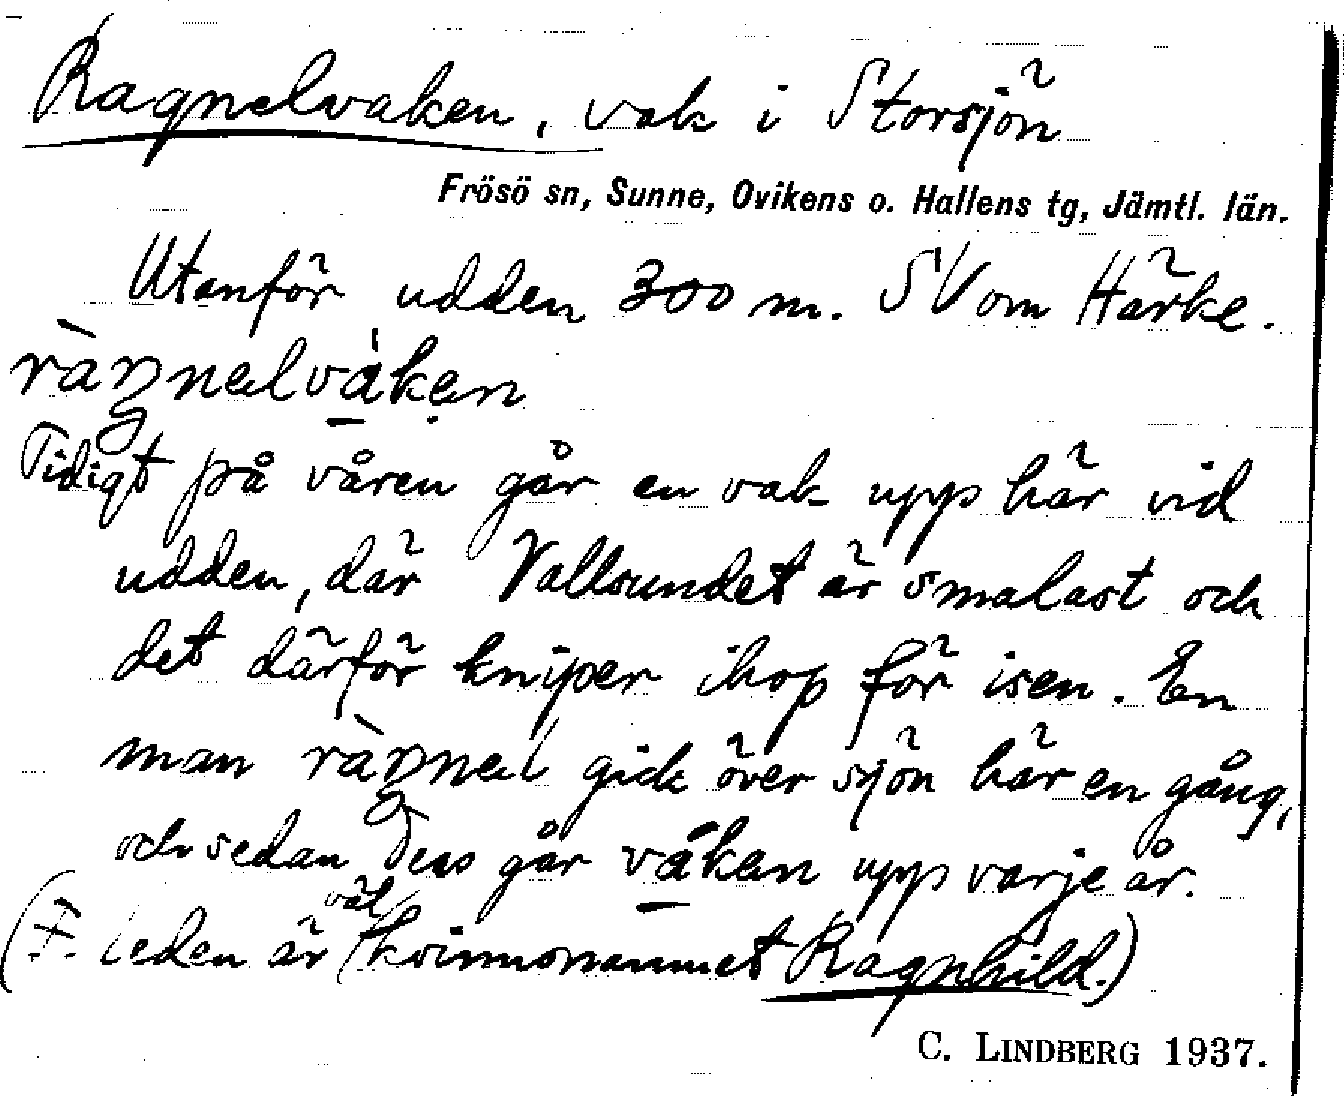 Ragnelvaken, vak i Storsjön
Frösö sn, Sunne, Ovikens o. Hallens tg, Jämtl. län.
Utanför udden 300 m. SV om Härke.
ràŋnælvák̲en
Tidigt på våren går en vak upp här vid
udden, där Vallsundet är smalast och
det därför kniper ihop för isen. En
man ràŋnæl gick över sjön här en gång,
och sedan dess går vákæn upp varje år.
(F. leden är väl kvinnonamnet Ragnhild.)
C. LINDBERG 1937.